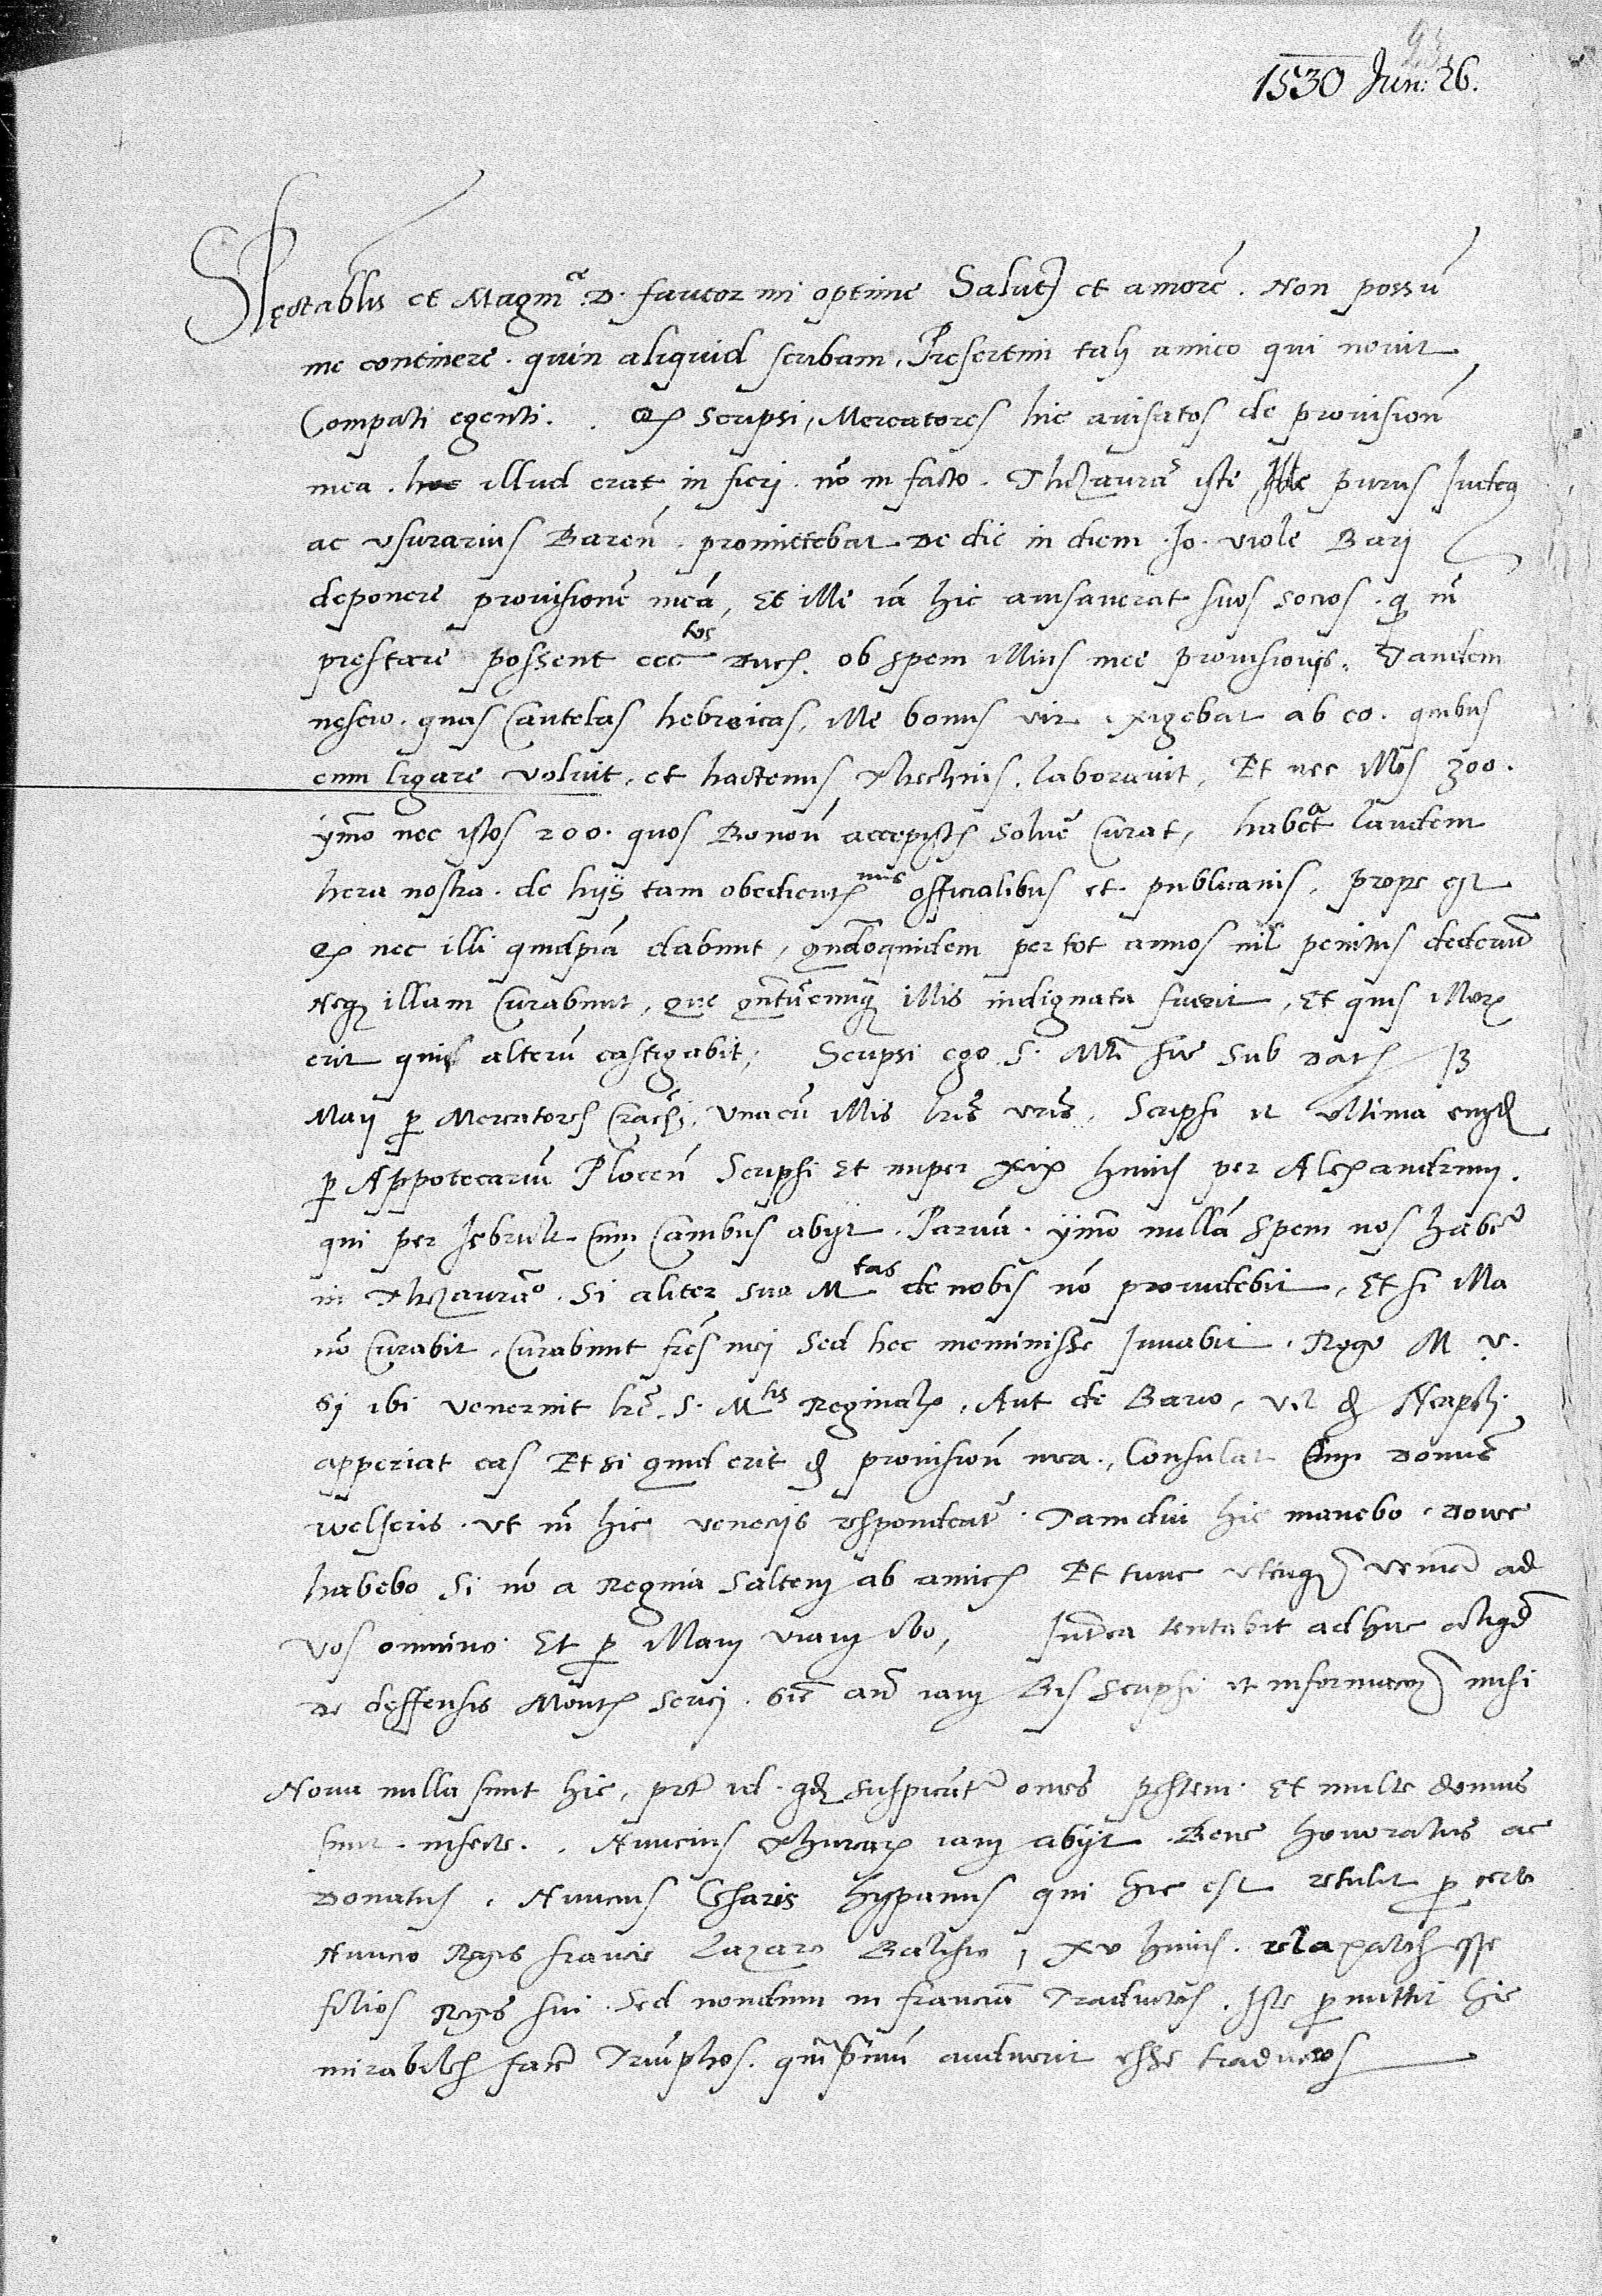 1530 Jun: 26.
Spectablis et Magnce. D. fautor mi optime Salutē et amorē. Non possū
me continere. quin aliquid scribam, Presertim tali amico qui novit
Compati egenti. Q scripsi, Mercatores hic avisatos de provisioñ
mea. illud erat in fierj. nō in facto. Thezaurar̃ iste purus Judeus
ac Usurarius Bareñ. promittebat De die in diem Jo. viole Barj
deponere provisionē meā, Et ille iā hic avisaverat suos socios. q m̃
prestare possent ccctos Duc. ob spem illius mee provisionis. Tandem
nescio. quas Cautelas hebraicas, ille bonus vir exigebat ab eo. quibus
eum ligare voluit, et hactenus thechnis laboravit, Et nec illos 300.
ymo nec istos 200. quos Bonoñ accepistis solvẽ Curat, habeat laudem
hera nostra. de hijs tam obedientmis officialibus et publicanis, prope est
Q nec illi quidpiā dabunt, quādoquidem per tot annos nil penitus dederūt
Neq illam Curabunt, que quātūcunq illis indignata fuerit, Et quis illorum
erit quis alterū castigabit, Scripsi ego S. Mti sue sub Dat 13
Maij p Mercatores Unacū illis lris vris, Scripsi et Ultima eiusd
p Appotecariū Ploceñ Scripsi Et nuper xix huius per Alexandrum.
qui per Isbruk Cum Cambus abijt. Parvā. ymo nullā spem nos haberẽ
in Thezaurar̃o. Si aliter sua Mtas de nobis nō providebit, Et si illa
nō Curabit, Curabunt frēs mej Sed hec meminisse Juvabit. Rogo M v.
Sj ibi venerint lrẽ S. Mtis Reginalis, Aut de Baro, vel d Neapolj
apperiat eas Et si quid erit d provisioñ mea, Consulat Cum Domis
welseris. ut m̃ hic venecijs respondeatr. Tamdiu hic manebo. donec
habebo Si nō a Regina Saltem ab amicis Et tunc veniā ad
Vos omnino. Et p illam viam ibo, Interea tentabit adhuc aliqd
de deffensis Montis serici. sic iam Bis scripsi et informacōē misi
Nova nulla sunt hic, preter id. qd suspicātr omēs pestem. Et multe domus
sunt infecte. Nuncius Thurcarum iam abijt. Bene honoratus ac
Donatus. Nuncius Cesaris hyspanus qui hic est retulit p certo
Nuncio Regis francie Lazaro Baiheo, xv huius. relaxatos esse
filios Regis sui. Sed nondum in franciā Traductos. Iste p mittit hic
mirabiles facẽ Triūphos. quāprimū audiverit esse traductos